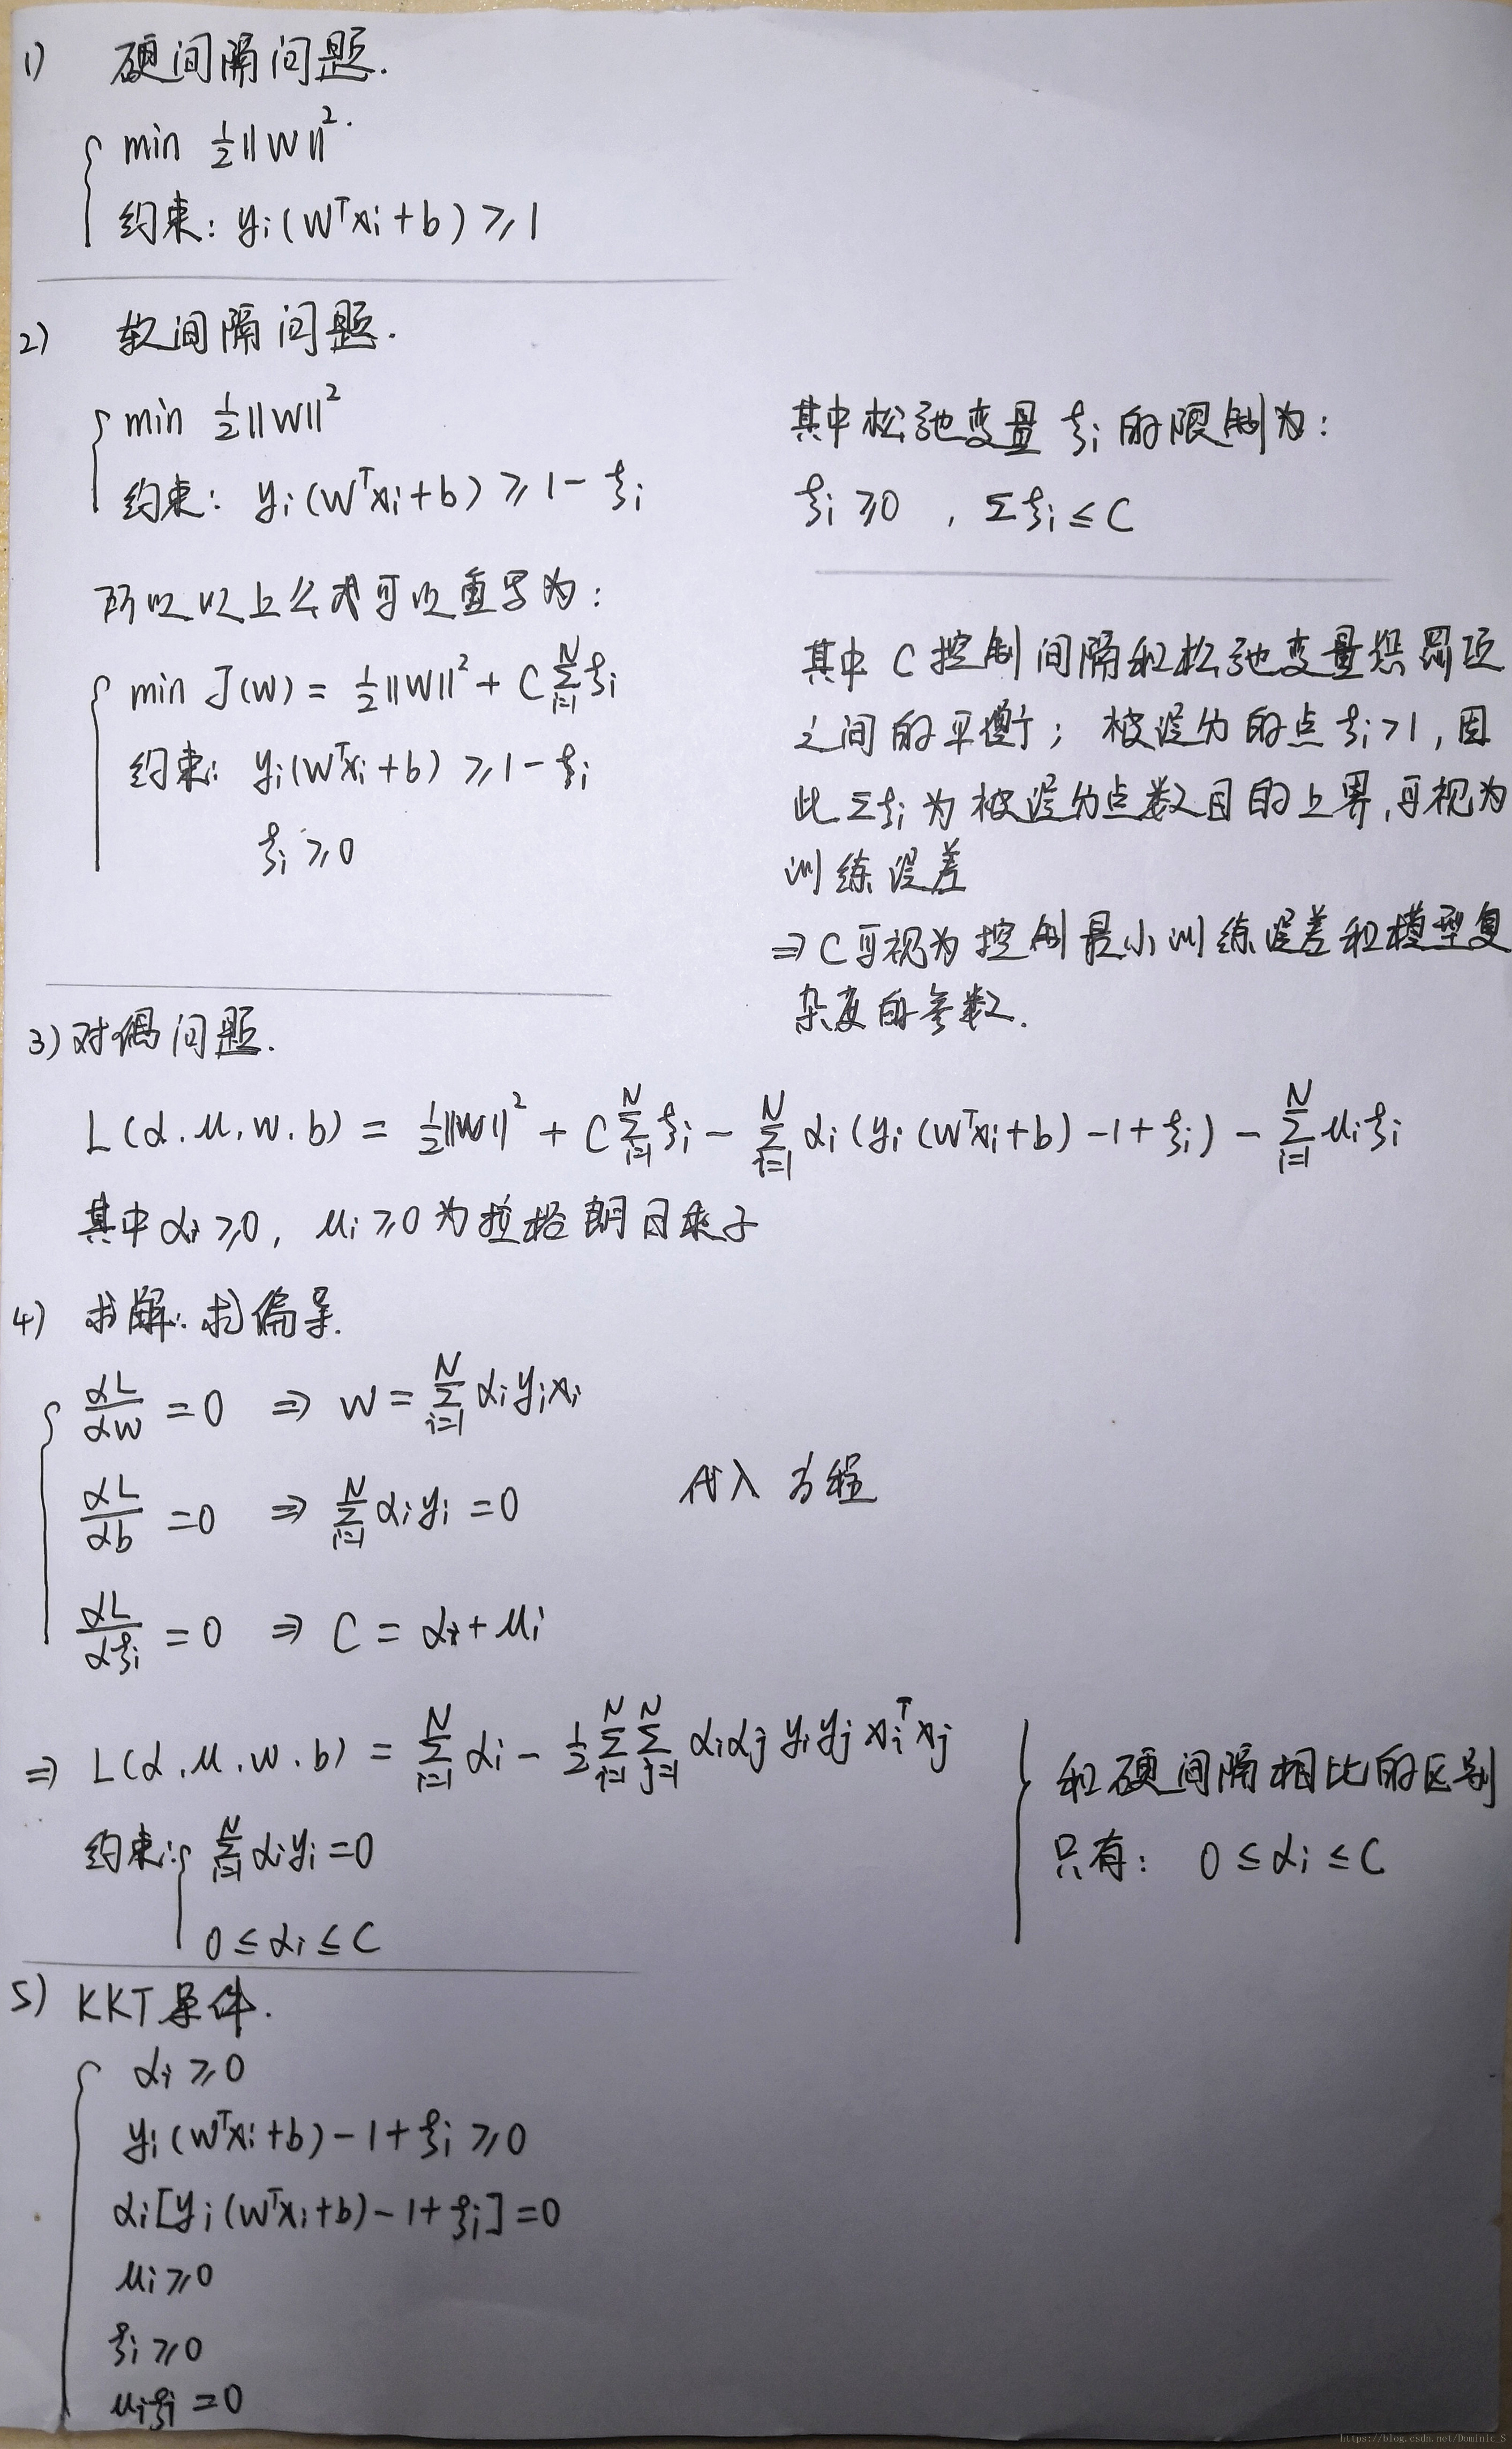 1) 硬间隔问题.
min ½||W||².
约束: yi(Wᵀxi+b) ≥ 1
2) 软间隔问题.
min ½||W||²
约束: yi(Wᵀxi+b) ≥ 1-ξi
其中松弛变量 ξi 的限制为:
ξi ≥ 0 , Σξi ≤ C
所以以上公式可以重写为:
min J(W) = ½||W||² + C Σ_{i=1}^{N} ξi
约束: yi(Wᵀxi+b) ≥ 1-ξi
ξi ≥ 0
其中 C 控制间隔和松弛变量惩罚项
之间的平衡; 被误分的点 ξi>1, 因
此 Σξi 为被误分点数目的上界,可视为
训练误差
⇒ C可视为控制最小训练误差和模型复
杂度的参数.
3) 对偶问题.
L(α.μ.w.b) = ½||W||² + C Σ_{i=1}^{N} ξi - Σ_{i=1}^{N} αi(yi(Wᵀxi+b)-1+ξi) - Σ_{i=1}^{N} μiξi
其中 αi ≥ 0, μi ≥ 0 为拉格朗日乘子
4) 求解: 求偏导.
αL/αW = 0 ⇒ W = Σ_{i=1}^{N} αiyixi
αL/αb = 0 ⇒ Σ_{i=1}^{N} αiyi = 0
代入方程
αL/αξi = 0 ⇒ C = αi + μi
⇒ L(α.μ.w.b) = Σ_{i=1}^{N} αi - ½ Σ_{i=1}^{N} Σ_{j=1}^{N} αiαj yiyj xiᵀxj
约束: Σ_{i=1}^{N} αiyi = 0
0 ≤ αi ≤ C
和硬间隔相比的区别
只有: 0 ≤ αi ≤ C
5) KKT条件.
αi ≥ 0
yi(Wᵀxi+b)-1+ξi ≥ 0
αi[yi(Wᵀxi+b)-1+ξi] = 0
μi ≥ 0
ξi ≥ 0
μiξi = 0
https://blog.csdn.net/Dominic_S